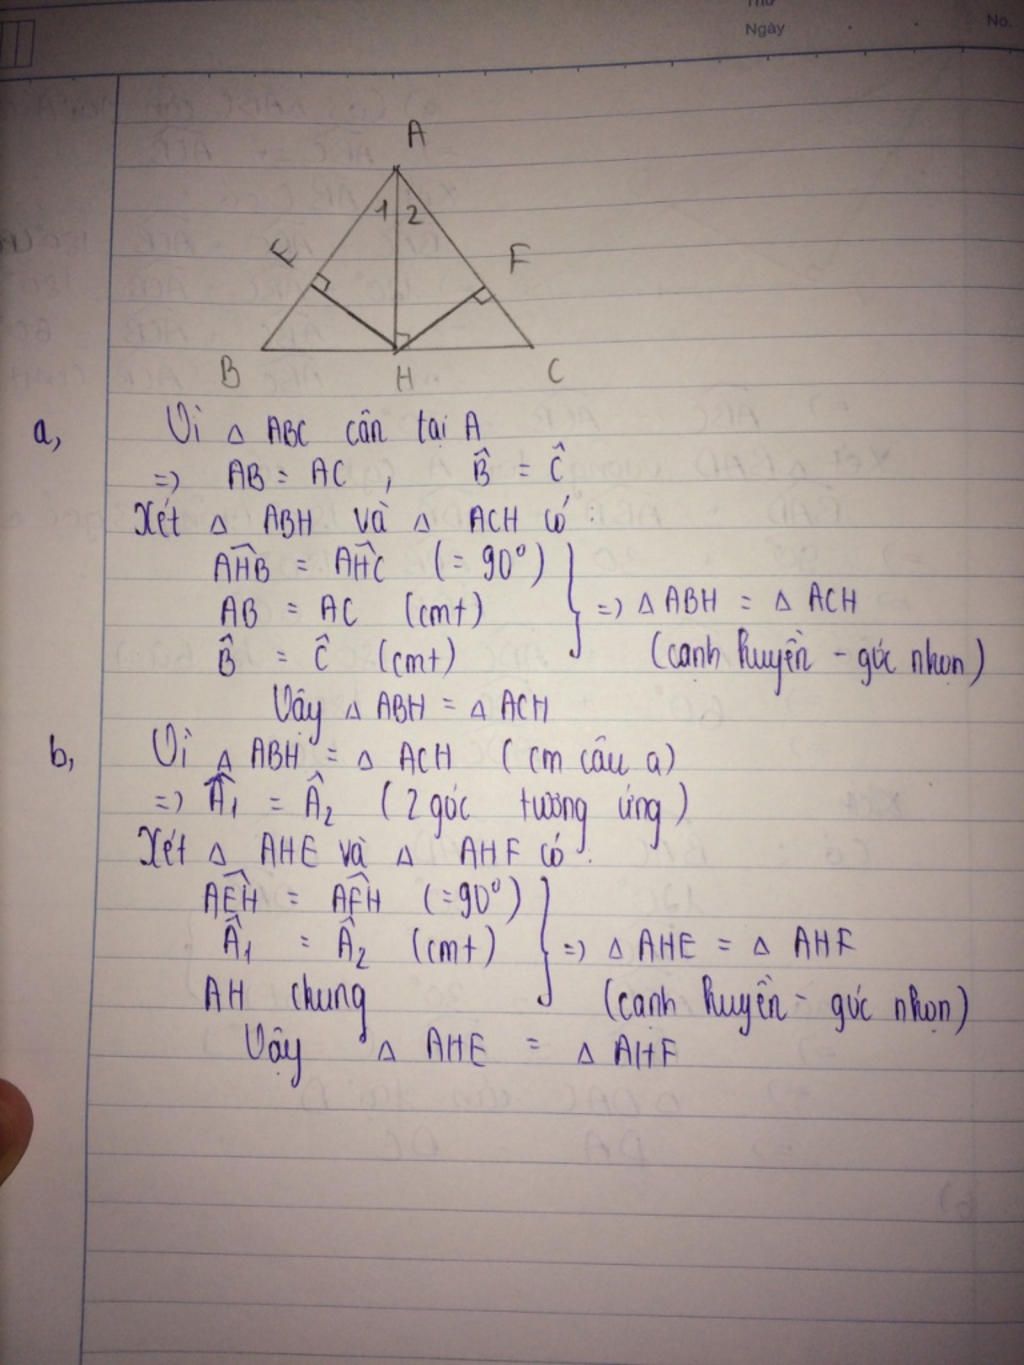 Thứ
Ngày
No.
A
1 2
E
F
B
H
C
a, Vì △ ABC cân tại A
=> AB = AC , B̂ = Ĉ
Xét △ ABH và △ ACH có :
AĤB = AĤC (= 90°)
AB = AC (cmt) => △ ABH = △ ACH
B̂ = Ĉ (cmt) (cạnh huyền - góc nhọn)
Vậy △ ABH = △ ACH
b, Vì △ ABH = △ ACH ( cm câu a)
=> Â₁ = Â₂ ( 2 góc tương ứng )
Xét △ AHE và △ AHF có :
AÊH = AF̂H (=90°)
Â₁ = Â₂ (cmt) => △ AHE = △ AHF
AH chung (cạnh huyền - góc nhọn)
Vậy △ AHE = △ AHF